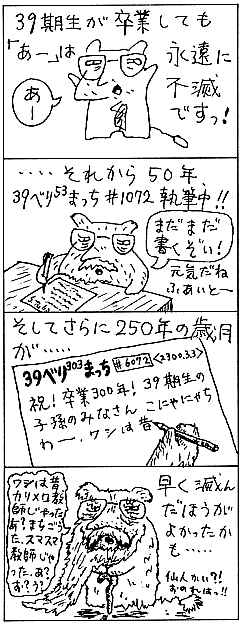 39期生が卒業しても
「あー」は
永遠に
不滅
ですっ!
あー
‥‥‥それから50年、
39べり53まっち#1072執筆中!!
まだまだ
書くぞい!
元気だね
ふぁいと〜
そしてさらに250年の歳月
が‥‥‥
39べり303まっち #6072 <2300.3.3>
祝!卒業300年!39期生の
子孫のみなさん こにゃにゃち
わー、ワシは昔
ワシは昔
カリメロ教
師じゃった
あ?まちごう
た、スマスマ
教師じゃ
った、あ?
早く滅ん
だほうが
よかったか
も‥‥‥
仙人かい?!
おのれはっ!!